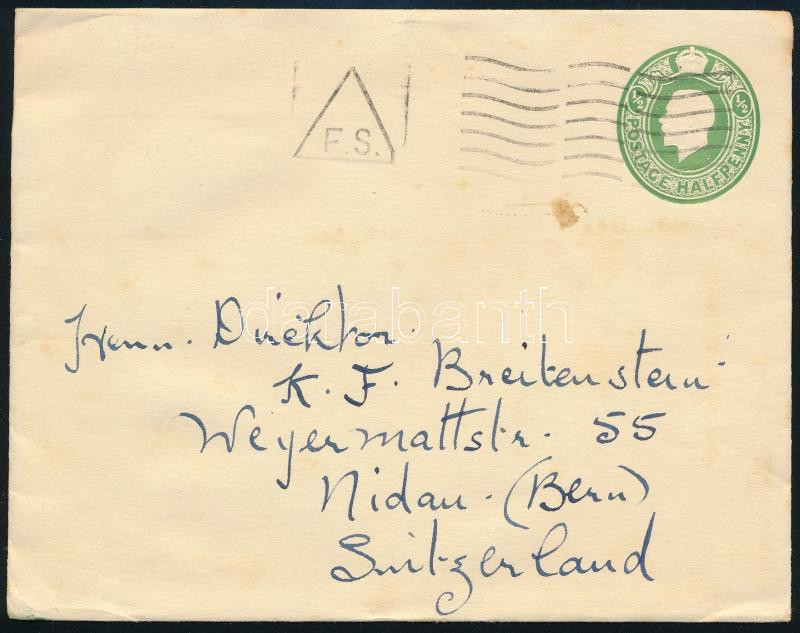 F.S.
½ ½
POSTAGE HALFPENNY
Herrn. Direktor.
K. F. Breitenstein
Weyermattstr. 55
Nidau. (Bern)
Switzerland
darabanth